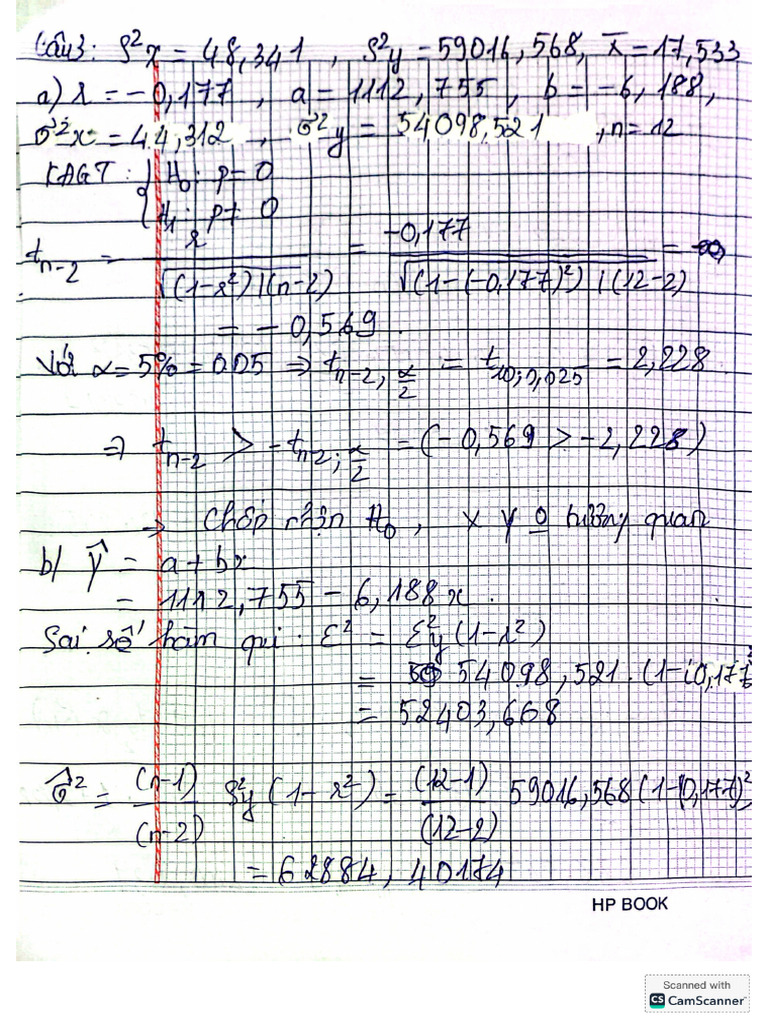 Câu3: S²x = 48,341 , S²y = 59016,568, x̄ = 17,533
a) r = -0,177 , a = 1112,755, b = -6,188,
σ²x = 44,312 , σ²y = 54098,521 , n = 12
KĐGT: { H₀: ρ = 0
{ H₁: ρ ≠ 0
t_{n-2} = r / √((1-r²)/(n-2)) = -0,177 / √((1-(-0,177)²)/(12-2)) =
= -0,569.
Với α = 5% = 0.05 ⇒ t_{n-2, α/2} = t_{10;0,025} = 2,228
⇒ t_{n-2} > -t_{n-2; α/2} = (-0,569 > -2,228)
→ Chấp nhận H₀, x y o tương quan
b/ ŷ = a + bx
= 1112,755 - 6,188x.
Sai số hàm qui: ε² = σ²y (1-r²)
= 54098,521.(1-(0,177²
= 52403,668
σ̂² = (n-1)/(n-2) S²y (1-r²) = (12-1)/(12-2) 59016,568(1-(0,177)²
= 62884,40174
HP BOOK
Scanned with
CS CamScanner